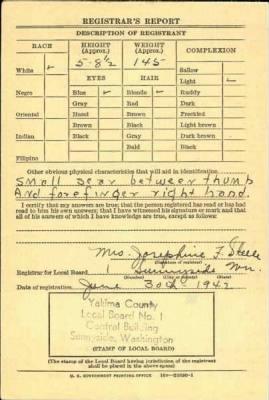 REGISTRAR'S REPORT
DESCRIPTION OF REGISTRANT
RACE HEIGHT (Approx.) WEIGHT (Approx.) COMPLEXION
5-8½ 145
White ✓ Sallow
EYES HAIR Light ✓
Negro Blue ✓ Blonde ✓ Ruddy
Gray Red Dark
Oriental Hazel Brown Freckled
Brown Black Light brown
Indian Black Gray Dark brown
Bald Black
Filipino
Other obvious physical characteristics that will aid in identification
Small scar between thumb
And forefinger right hand.
I certify that my answers are true; that the person registered has read or has had
read to him his own answers; that I have witnessed his signature or mark and that
all of his answers of which I have knowledge are true, except as follows:
Mrs. Josephine F. Steele
(Signature of registrar)
Registrar for Local Board 1 Sunnyside Wn.
(Number) (City or county) (State)
Date of registration June 30th 1942
Yakima County
Local Board No. 1
Central Building
Sunnyside, Washington
(STAMP OF LOCAL BOARD)
(The stamp of the Local Board having jurisdiction of the registrant
shall be placed in the above space)
U. S. GOVERNMENT PRINTING OFFICE